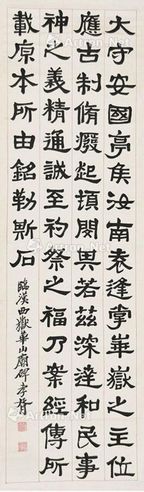 大守安國亭侯汝南袁逢掌華嶽之主位
應古制脩癈起頓閔其若茲深達和民事
神之義精通誠至礿祭之福乃案經傳所
載原本所由銘勒斯石
臨漢西嶽華山廟碑 孝胥